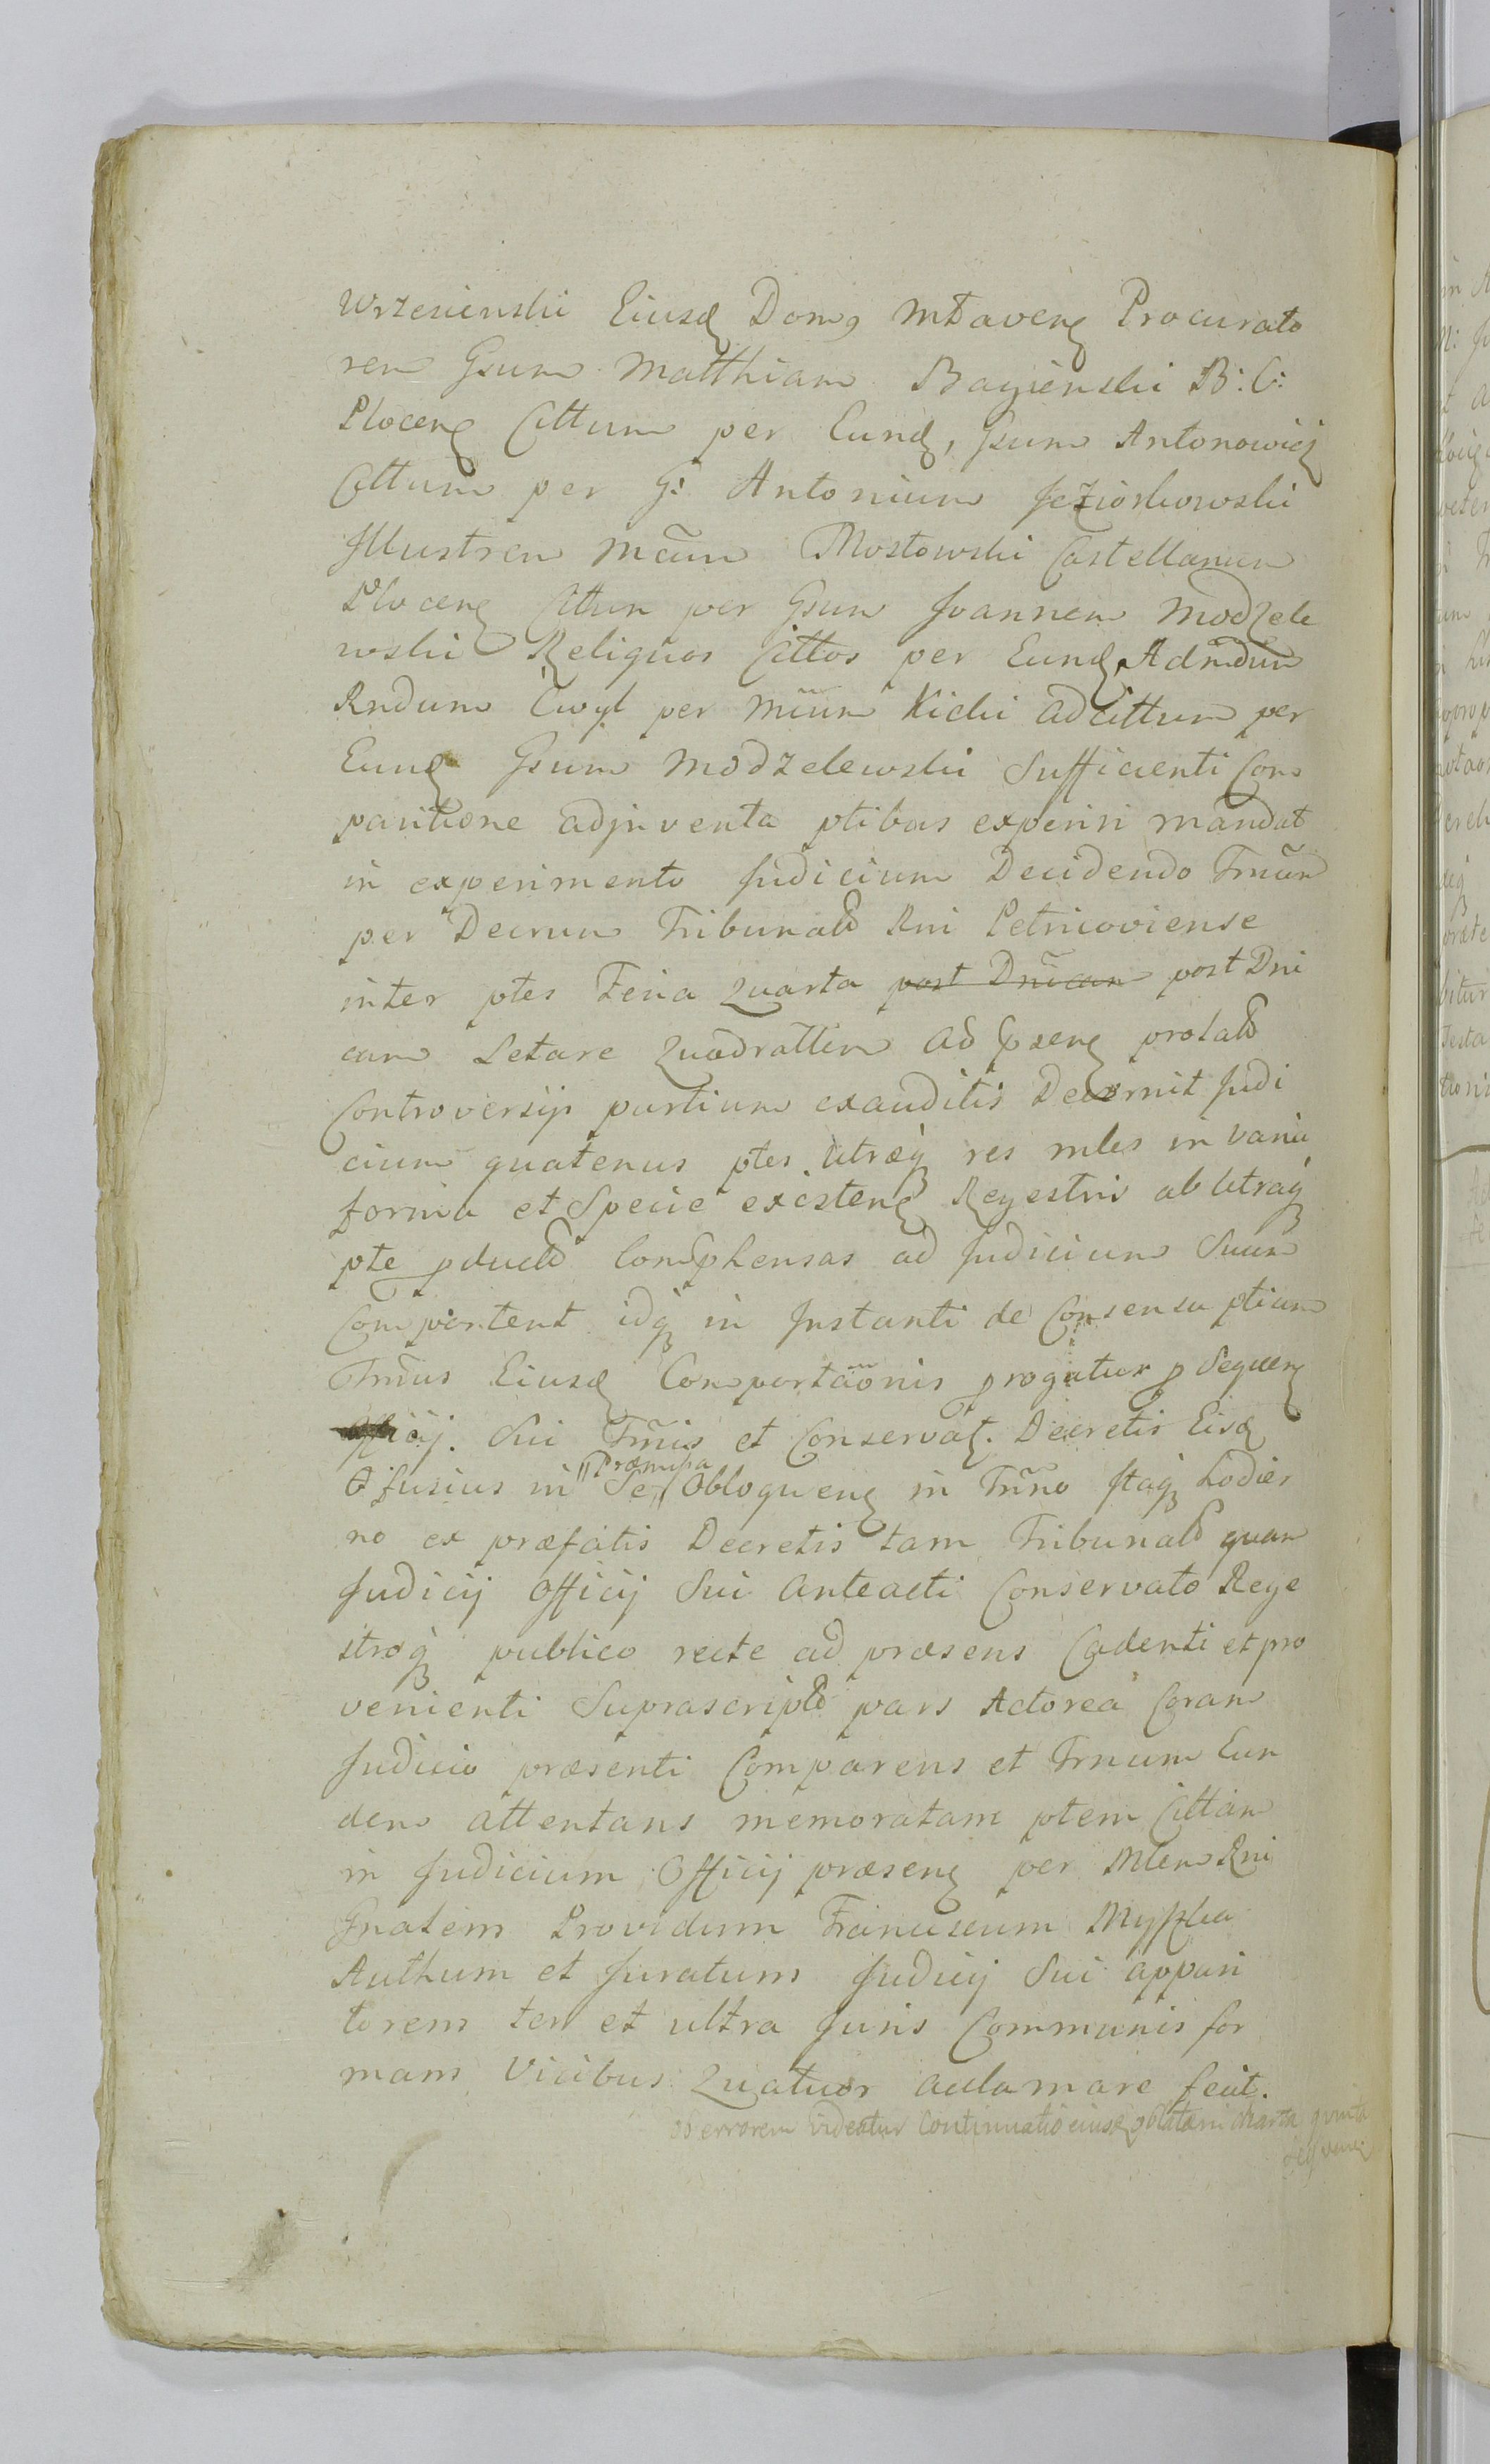 Wrzesienski Eiusd Domg Młaveng Procurato
rem Gsum Matthiam Bagienski B: C:
Ploceng Cittum per Eund, Gsum Antonowicz
Cittum per G: Antonium Jeziorkowski
Jllustrem Mcum Mostowski Castellanum
Ploceng Cittum per Gsum Joannem Modzele
wski Religuos Cittos per Eund Admdum
Rndum Cwyl per Mcum Kicki adcittum per
Eund Gsum Modzelewski Sufficienti Com
paritione adjnventa ptibus experiri mandat
in experimento Judicium Decidendo Trnum
per Decrum Tribunal Rni Petricoviense
inter ptes Feria Quarta post Dnicam post Dni
cam Letare Quadratten ad pseng prolat
Controversijs partium exauditis Decernit Judi
cium quatenus ptes utræq res mles in varia
forma et Specie existeng Regestris ab utraq
pte pduct Comphensas ad Judicium Suum
Comportent idq in Jnstanti de Consensu ptium
Trmus Eiusd Comportaonis progatur p Sequen
Officij. Sui Trmis et Conservat. Decretis Eisd
fusius in Præmissa Se Obloqueng in Trno Jtaq hodier
no ex præfatis Decretis tam Tribunal quam
Judicij Officij Sui anteacti Conservato Rege
stroq publico recte ad præsens Cadenti et pro
venienti Suprascript pars Actorea Coram
Judicio præsenti Comparens et Trnum Eun
dem attentans memoratam ptem Cittam
in Judicium Officij præseng per Mlem Rni
Gnalem Providum Franciscum Myszka
Authum et Juratum Judicij Sui appari
torem ter et ultra Juris Communis for
mam Vicibus Quatuor aclamare fecit.
ob errorem videatur Continuatio eiusd oblatæ in charta quinta
sequeng